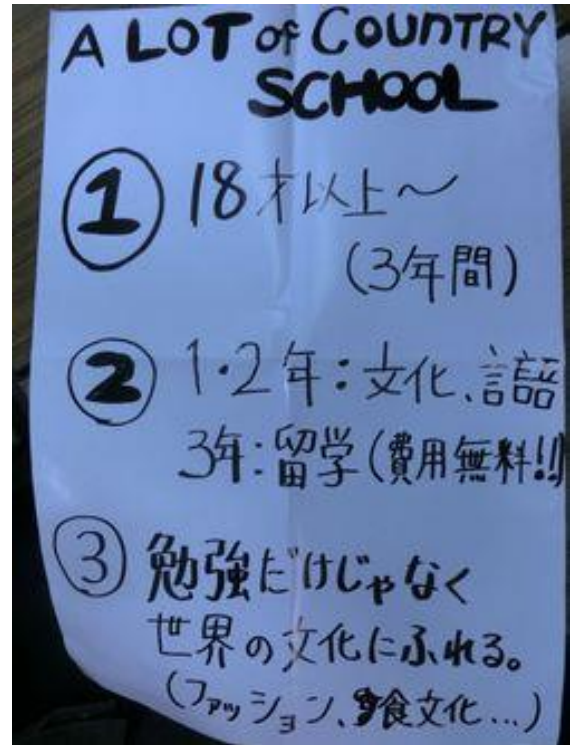 A LOT of COUNTRY
SCHOOL
① 18才以上～
(3年間)
② 1・2年：文化、言語
3年：留学(費用無料!!)
③ 勉強だけじゃなく
世界の文化にふれる。
(ファッション、食文化...)